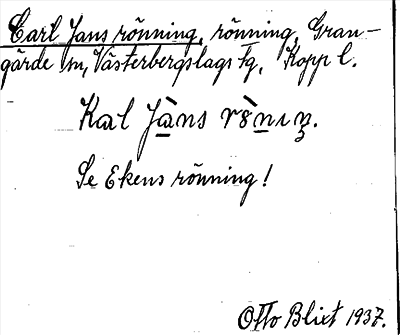 Carl Jans rönning, rönning, Gran-
gärde sn, Västerbergslags tg, Kopp l.
Kal Jàns r
Se Ekens rönning!
Otto Blixt 1937.